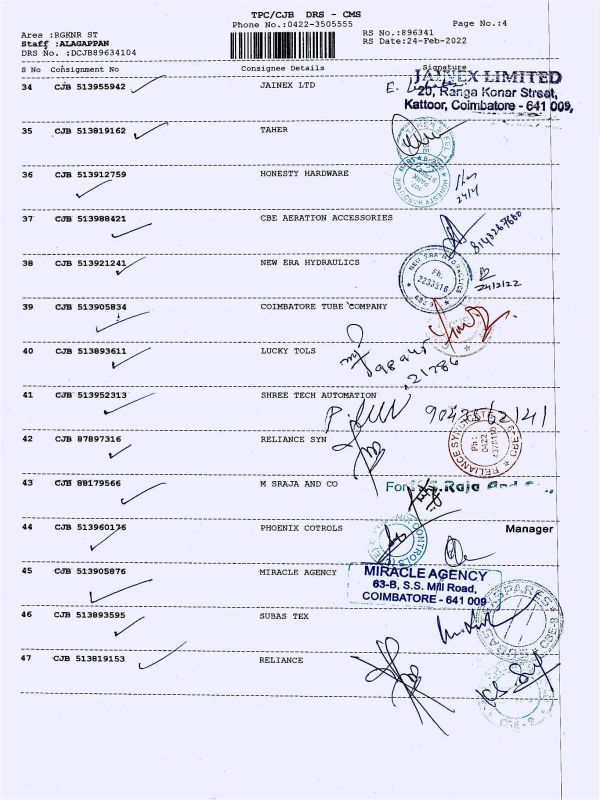 TPC/CJB DRS - CMS
Phone No.:0422-3505555
Page No.:4
Area :RGKNR ST
RS No.:896341
Staff :ALAGAPPAN
RS Date:24-Feb-2022
DRS No. :DCJB89634104
S No Consignment No Consignee Details Signature
34 CJB 513955942 JAINEX LTD
JAINEX LIMITED
20, Ranga Konar Street,
Kattoor, Coimbatore - 641 009,
35 CJB 513819162 TAHER
36 CJB 513912759 HONESTY HARDWARE
37 CJB 513988421 CBE AERATION ACCESSORIES
38 CJB 513921241 NEW ERA HYDRAULICS
Ph.
2233516
24/2/22
39 CJB 513905834 COIMBATORE TUBE COMPANY
40 CJB 513893611 LUCKY TOLS
41 CJB 513952313 SHREE TECH AUTOMATION
42 CJB 87897316 RELIANCE SYN
RELIANCE SYNDICATE
Ph:
0422
43 CJB 88179566 M SRAJA AND CO
For
44 CJB 513960176 PHOENIX COTROLS
Manager
45 CJB 513905876 MIRACLE AGENCY
MIRACLE AGENCY
63-B, S.S. Mill Road,
COIMBATORE - 641 009
46 CJB 513893595 SUBAS TEX
47 CJB 513819153 RELIANCE